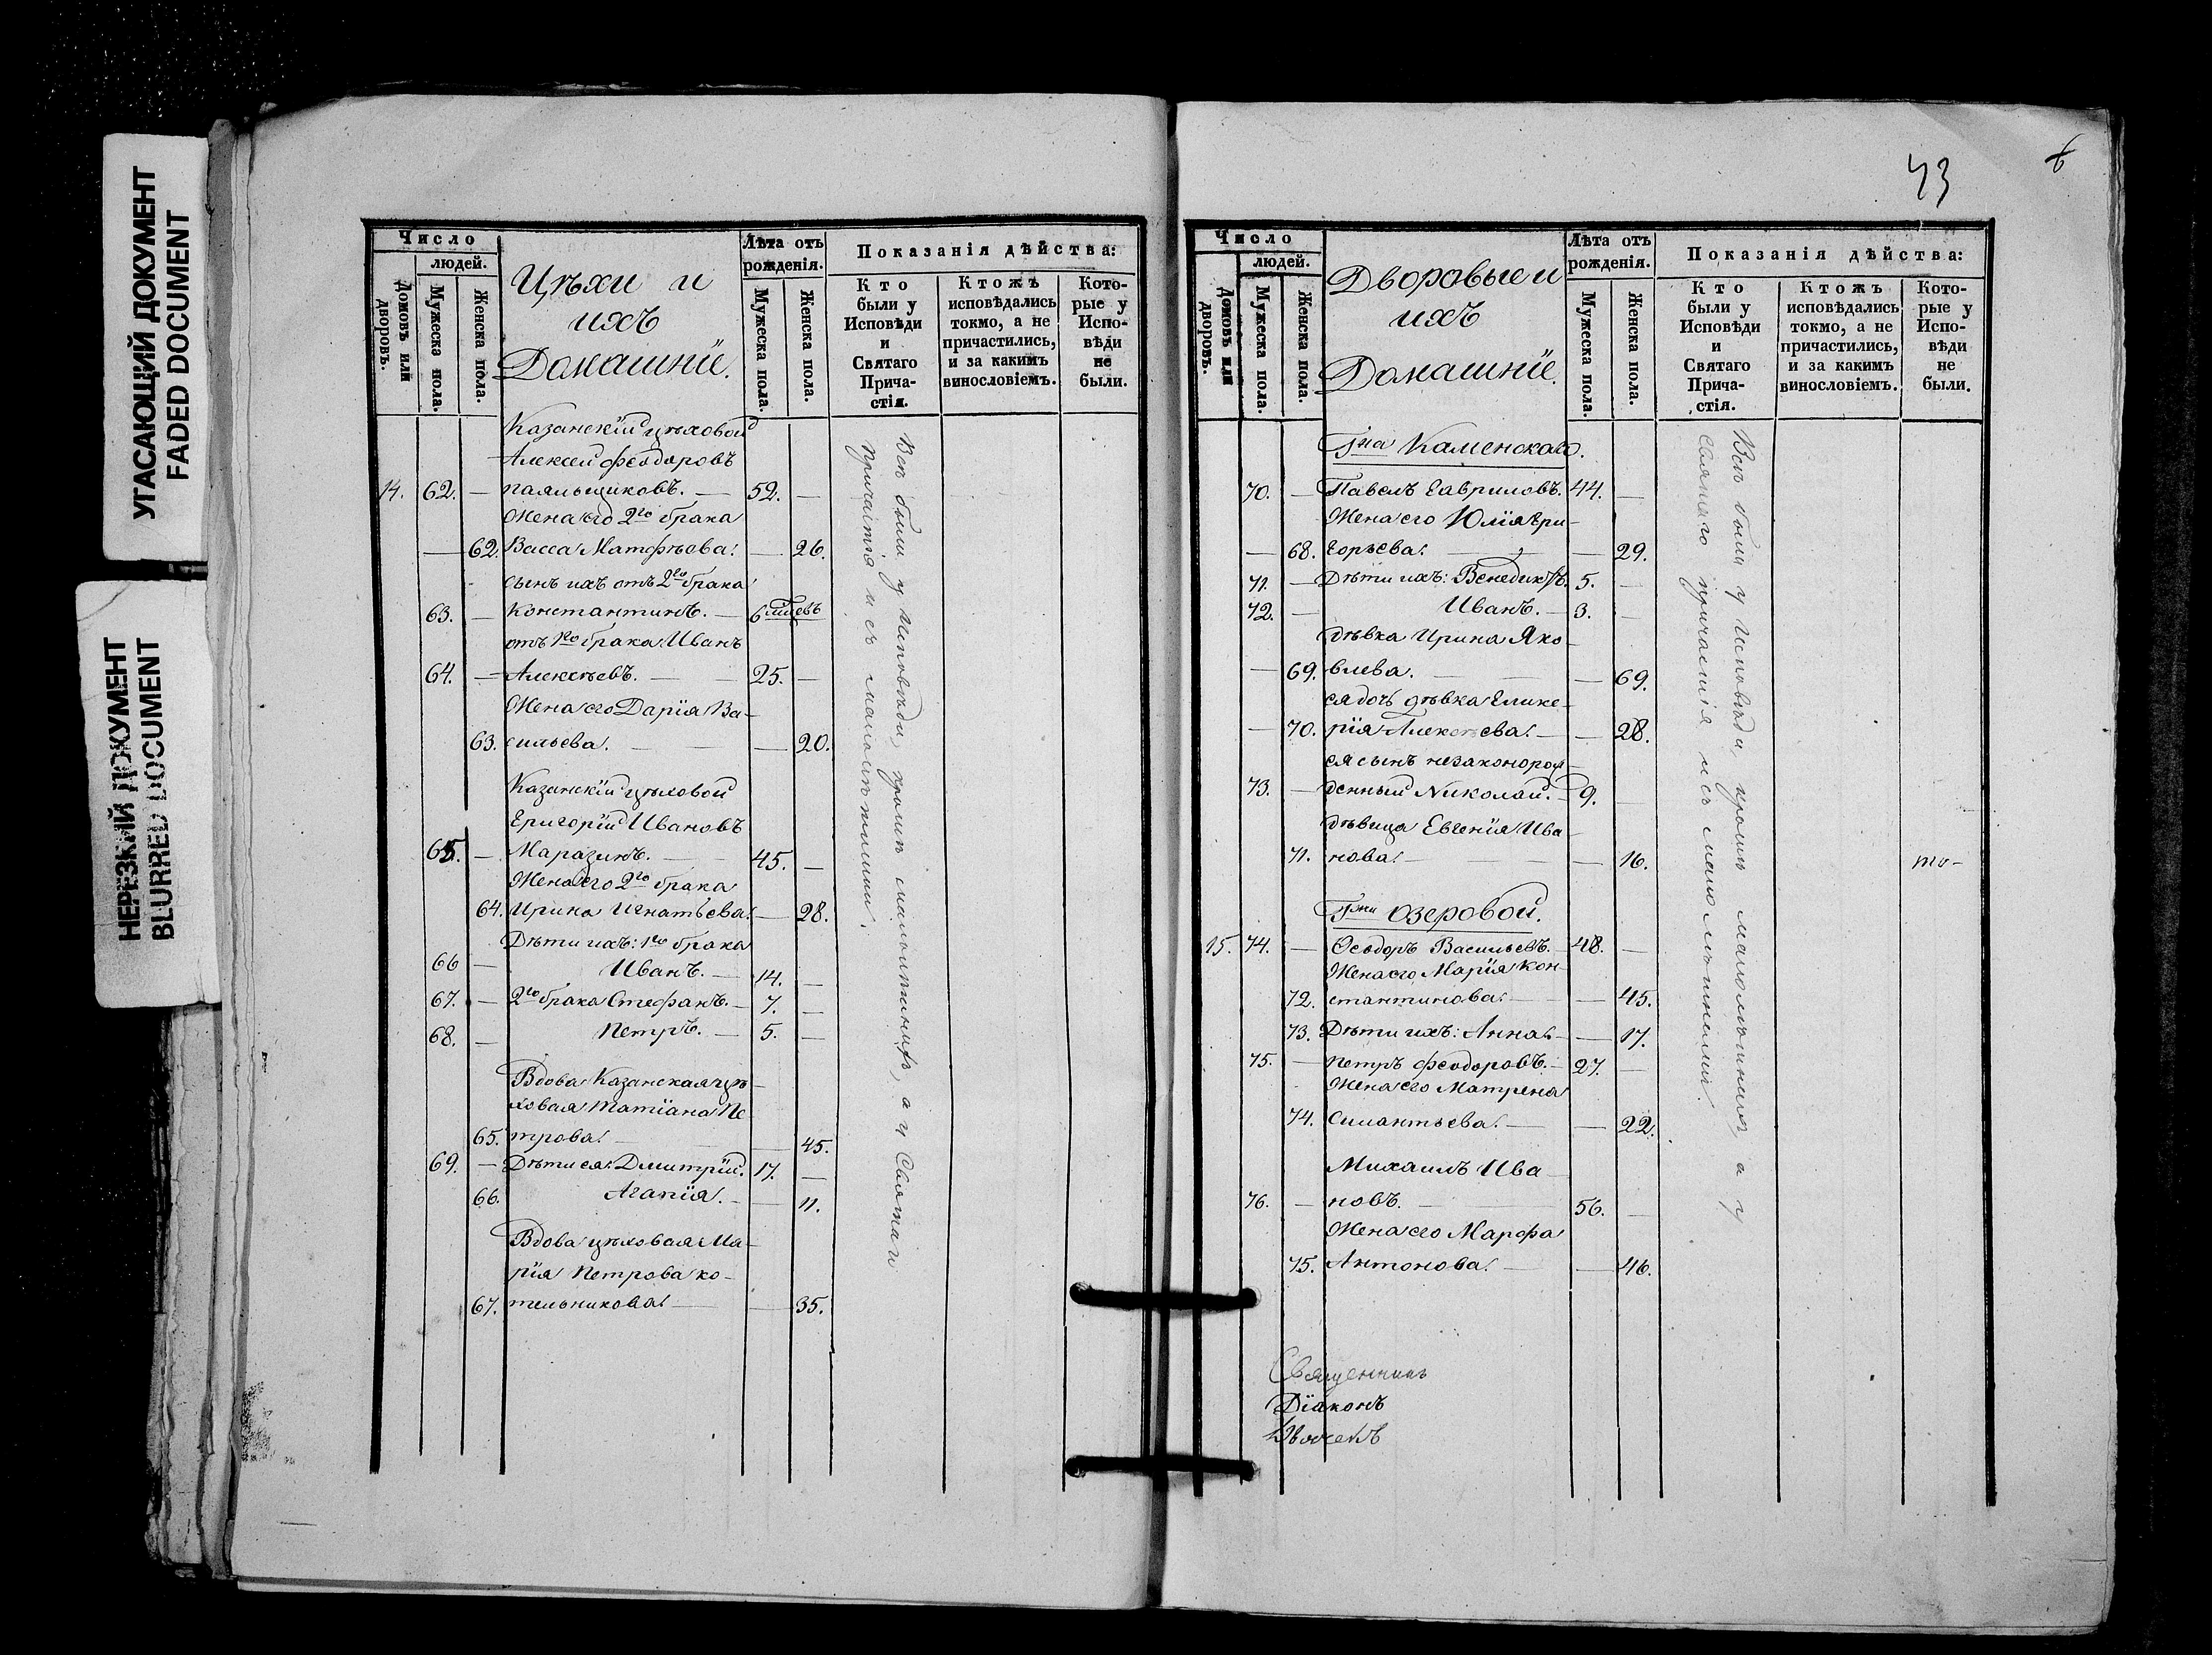 УГАСАЮЩИЙ ДОКУМЕНТ
FADED DOCUMENT
НЕРЕЗКИЙ ДОКУМЕНТ
BLURRED DOCUMENT
Число
людей.
Домовъ или дворовъ.
Мужеска пола.
Женска пола.
Цѣхи и
ихъ
Домашніе.
Лѣта отъ
рожденія.
Мужеска пола.
Женска пола.
Показанія дѣйства:
Кто
были у
Исповѣди
и
Святаго
Прича-
стія.
Ктожъ
исповѣдались
токмо, а не
причастились,
и за какимъ
винословіемъ.
Кото-
рые у
Испо-
вѣди
не
были.
Казанскій цѣховой
Алексей Феодоровъ
14. 62. — Паяльщиковъ. — 52. —
Жена его 2го брака
— 62. Васса Матфѣева. — 26.
сынъ ихъ отъ 2го брака
63. — Константинъ. — 6
отъ 1го брака Иванъ
64. — Алексѣевъ. — 25. —
Жена его Дарія Ва-
63. сильева. — — 20.
Казанскій цѣховой
Григорій Ивановъ
65. — Маразинъ. — 45. —
Жена его 2го брака
64. Ирина Игнатьева. — 28.
Дѣти ихъ: 1го брака
66 — Иванъ. — 14. —
67. — 2го брака Стефанъ. — 7. —
68. — Петръ. — 5. —
Вдова Казанская цѣ-
ховая Татіана Пе
65. трова. — — 45.
69. — Дѣти ея: Димитрій. 17. —
66. Агапія. — — 11.
Вдова цѣховая Ма-
рія Петрова Ко-
67. тельникова. — — 35.
Всѣ были у Исповѣди, кромѣ малолѣтнихъ, а у Святаго
Причастія и съ малолѣтними.
43
6
Число
людей.
Домовъ или дворовъ.
Мужеска пола.
Женска пола.
Дворовые и
ихъ
Домашніе.
Лѣта отъ
рожденія.
Мужеска пола.
Женска пола.
Показанія дѣйства:
Кто
были у
Исповѣди
и
Святаго
Прича-
стія.
Ктожъ
исповѣдались
токмо, а не
причастились,
и за какимъ
винословіемъ.
Кото-
рые у
Испо-
вѣди
не
были.
Гна Каменскаго.
70. — Павелъ Гавриловъ. 44. —
Жена его Юлія Гри-
— 68. горьева. — — 29.
71. — Дѣти ихъ: Венедиктъ. 5. —
72. — Иванъ. — 3. —
дѣвка Ирина Яко-
— 69. влева. — — 69.
ея дочь дѣвка Глике-
— 70. рія Алексѣева. — — 28.
ея сынъ незаконорож-
73. — денный Николай. — 9. —
дѣвица Евгенія Ива-
71. нова. — — 16.
Гжи Озеровой.
15. 74. — Ѳеодоръ Васильевъ. — 48. —
Жена его Марія Кон-
72. стантинова. — — 45.
73. Дѣти ихъ: Анна. — — 17.
75. — Петръ Феодоровъ. — 27. —
Жена его Матрена
74. Силантьева. — — 22.
Михаилъ Ива-
76. — новъ. — 56. —
Жена его Марфа
75. Антонова. — — 46.
Всѣ были у Исповѣди, кромѣ малолѣтнихъ, а у
Святаго причастія и съ малолѣтними.
Священникъ
Діаконъ